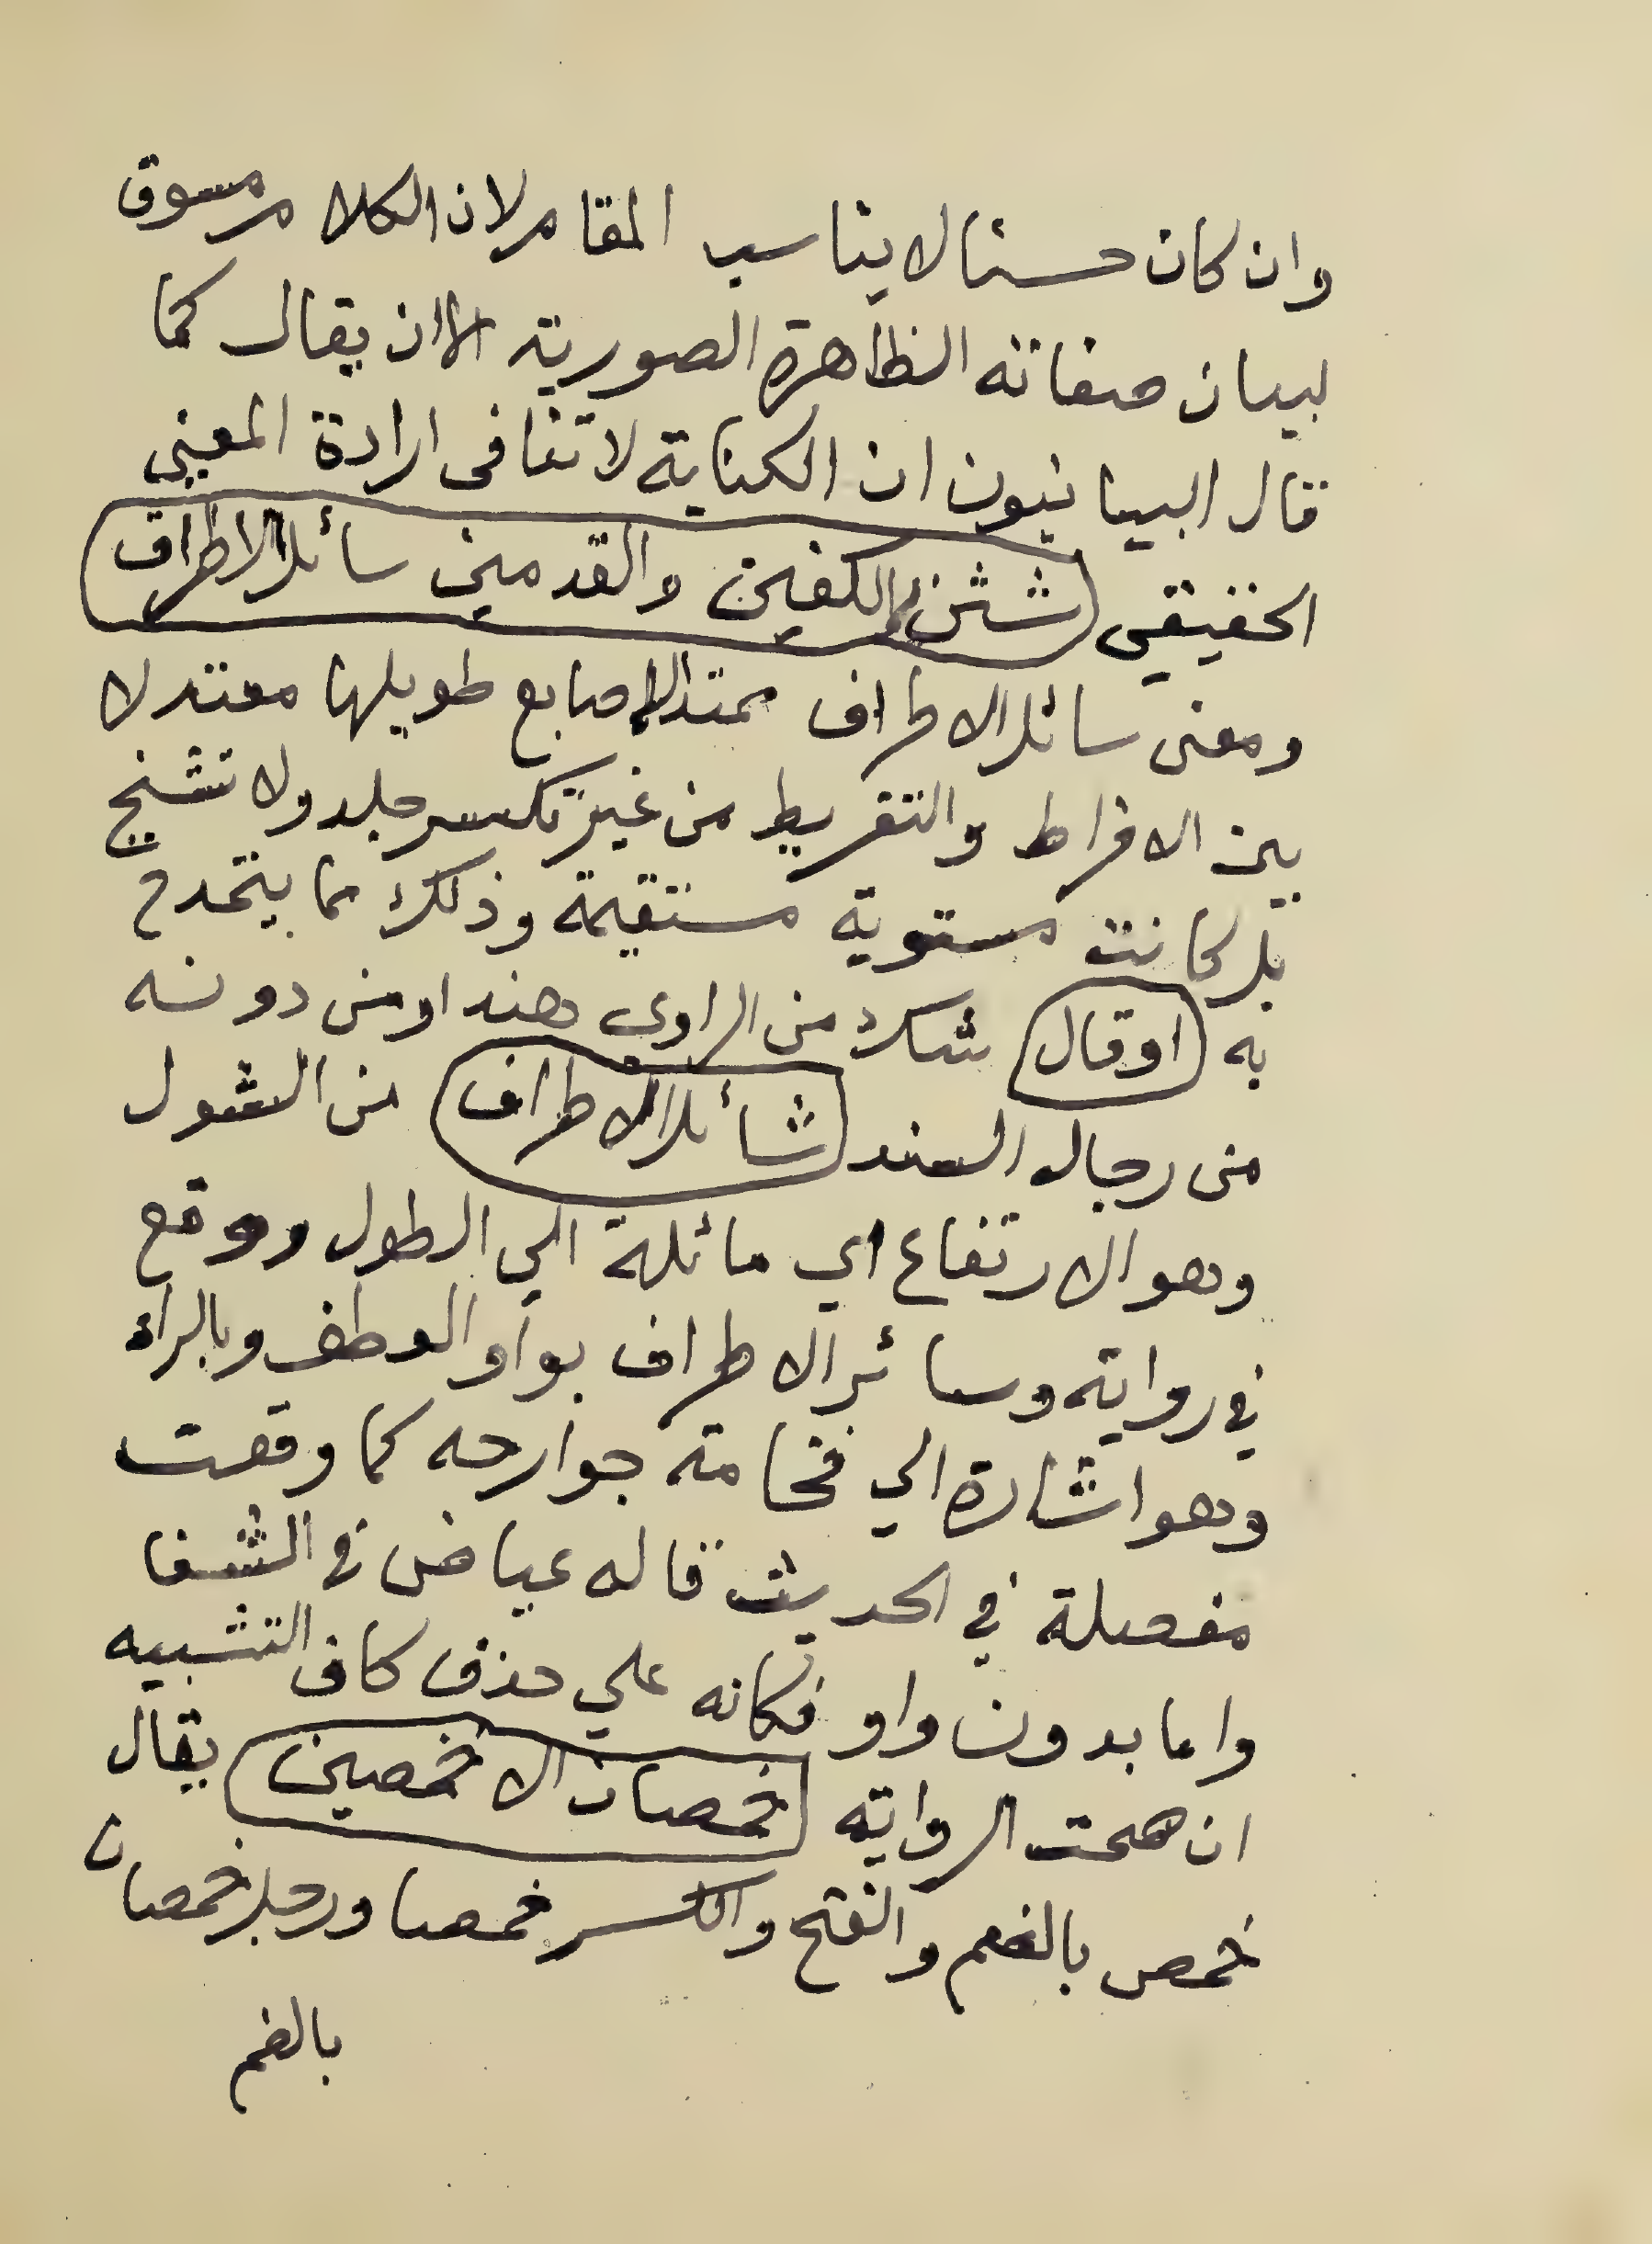 وان كان حسنا لا يناسب المقام لان الكلام مسوق
لبيان صفاته الظاهرة الصورية الا ان يقال كما
قال البيانيون ان الكناية لا تنافى ارادة المعني
الحقيقي شثن الكفين والقدمين سائل الاطراف
ومعنى سائل الاطراف ممتد الاصابع طويلها معتدلا
بين الافراط والتفريط من غير تكسر جلد ولا تشنج
بل كانت مستوية مستقيمة وذلك مما يتمدح
به اوقال شك من الراوى هند او من دونه
من رجال السند شائل الاطراف من الشول
وهو الارتفاع اي مائلة الي الطول ووقع
في رواية وسائر الاطراف بواو العطف وبالراء
وهو اشارة الي فخامة جوارحه كما وقعت
مفصلة في الحديث قاله عياض في الشفا
واما بدون واو فكانه علي حذف كاف التشبيه
ان صحت الرواية خمصان الاخمصين يقال
خمص بالضم والفتح والكسر خمصا ورجل خمصان
بالضم